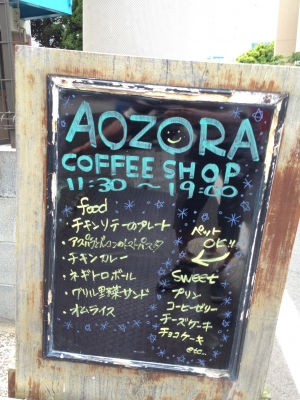 AOZORA
COFFEE SHOP
11:30 〜 19:00
food
・チキンソテーのプレート
・アスパラとベーコンのトマトパスタ
・チキンカレー
・ネギトロボール
・グリル野菜サンド
・オムライス
ペット
OK!!
Sweet
プリン
コーヒーゼリー
チーズケーキ
チョコケーキ
etc...